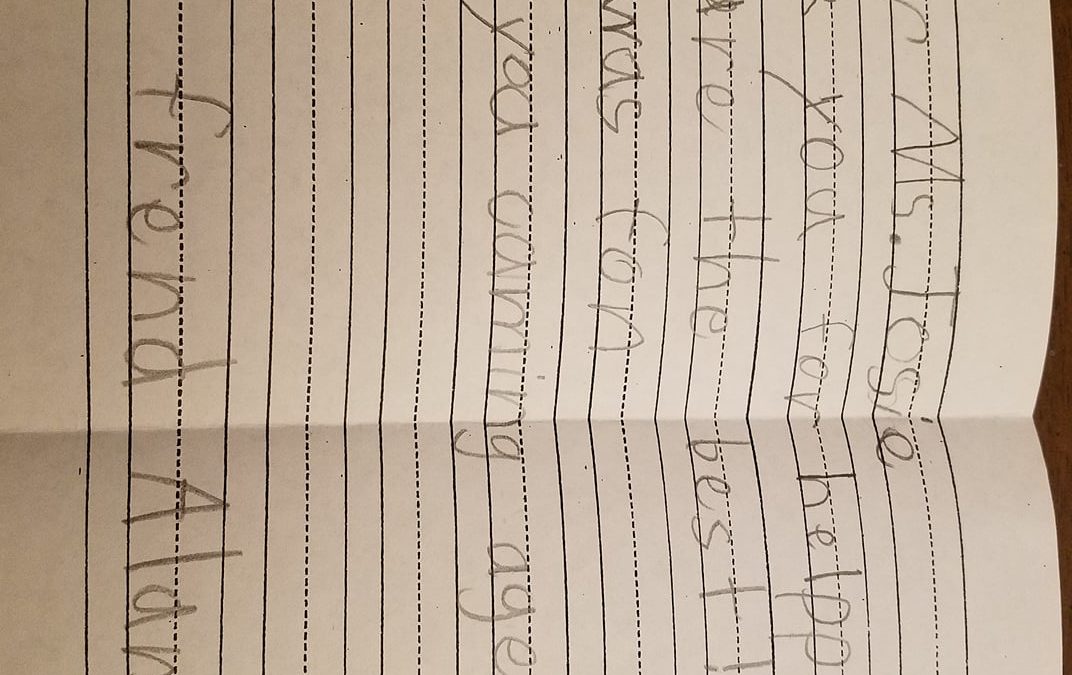 r Ms. Josie
you for help
are the best!
was fon
you coming age
frend Alan